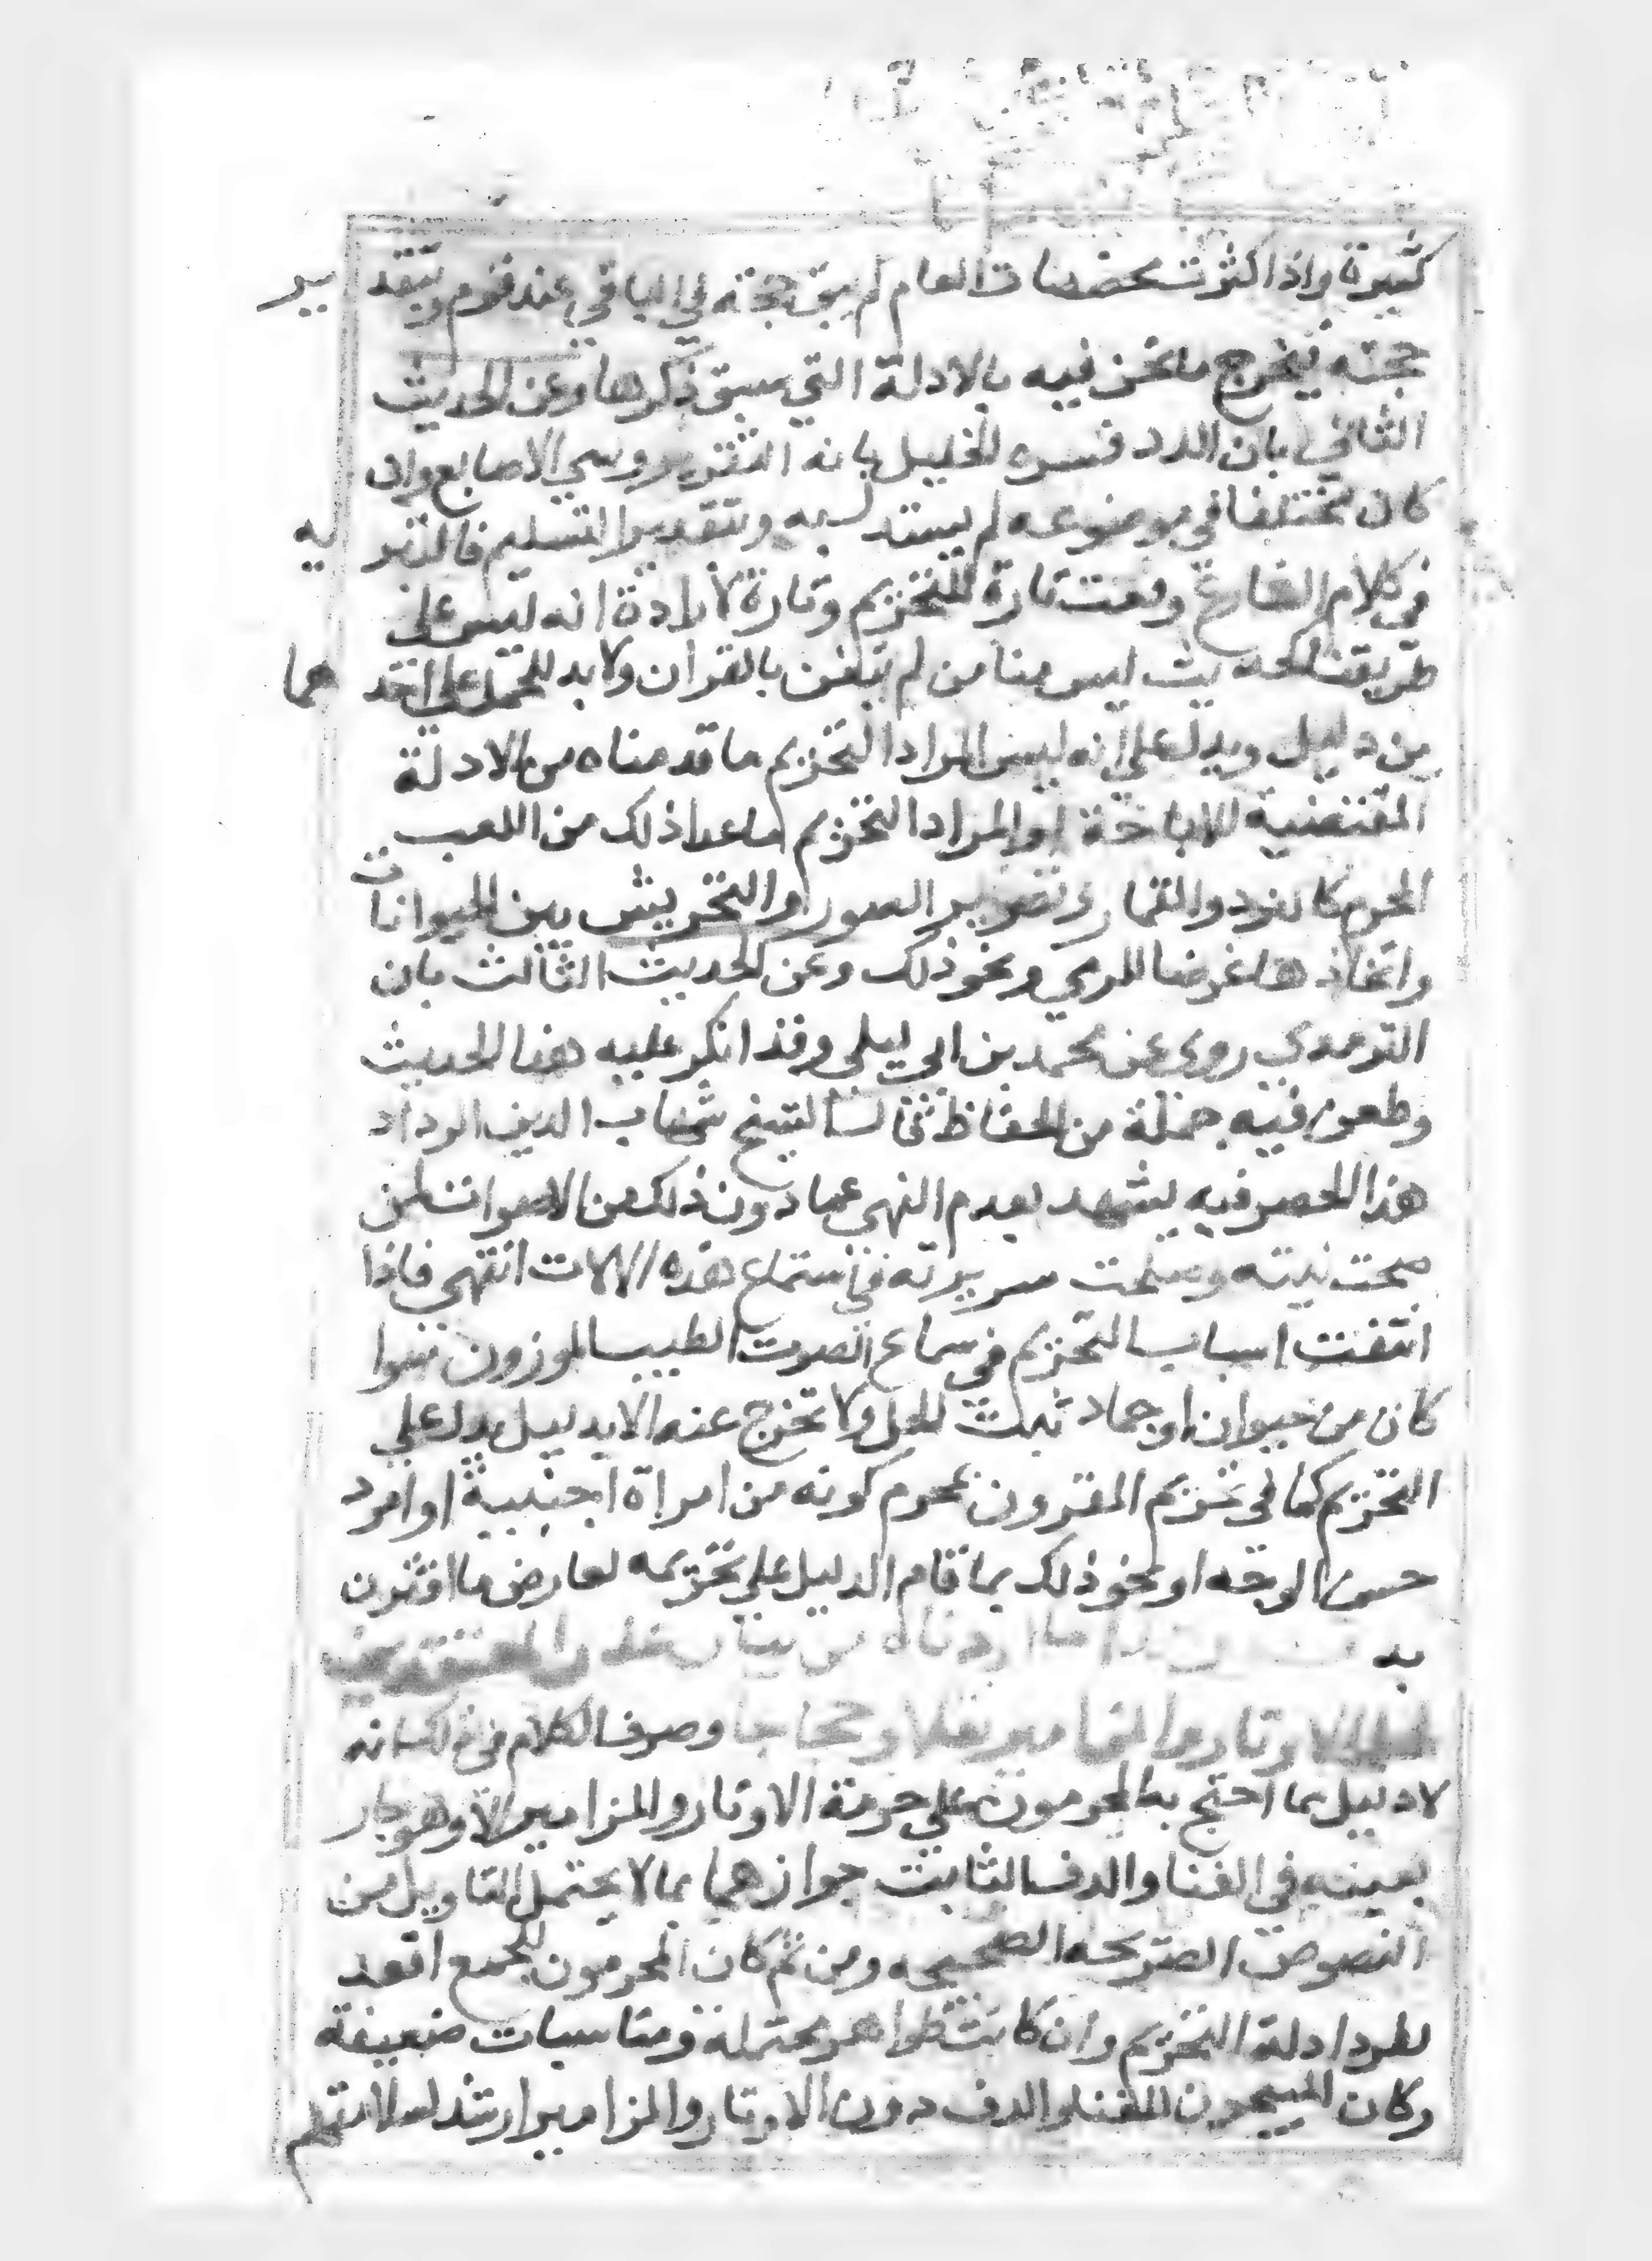 كثيرة واذا كثرت مخصصات العام لم يبق حجته في الباقي عند قوم وبتقد ير
حجته يخرج ما نحن فيه بالادلة التي سبق ذكرها وعن الحديث
الثاني بان الدد فسره الخليل بانه النقر بروس الاصابع وان
كان مختلفا في موضوعه لم يستدل به وبتقدير التسليم فالتبر يه
في كلام الشارع وقعت تارة للتحريم وتارة لارادة انه ليس على
طريقتنا لحديث ليس منا من لم يتغن بالقران ولا بد للحمل على احد هما
من دليل ويدل على انه ليس المراد التحريم ما قدمناه من الادلة
المقتضية للاباحة او المراد التحريم ما عدا ذلك من اللعب
المحرم كالنرد والقمار وتصوير الصور والتحريش بين الحيوانات
واتخاذها غرضا للرمي ونحو ذلك وعن الحديث الثالث بان
الترمذي روى عن محمد بن ابي ليلى وقد انكر عليه هذا الحديث
وطعن فيه جملة من الحفاظ قال الشيخ شهاب الدين الرداد
هذا الحصر فيه يشهد بعدم النهي عما دون ذلك من الاصوات لمن
صحت نيته وصلحت سريرته في استماع هذه الالات انتهى فاذا
انتفت اسباب التحريم في سماع الصوت الطيب الموزون سوا
كان من حيوان او جماد ثبت الحل ولا تخرج عنه الا بدليل يدل على
التحريم كما في تحريم المقرون بمحرم كونه من امراة اجنبية او امرد
حسن الوجه او نحو ذلك بما قام الدليل على تحريمه لعارض ما اقترن
به ما اردناه من بيان
الاوتار والمزامير نقلا وحجاجا وصرف الكلام في ذلك انه
لا دليل مما احتج به المحرمون على حرمة الاوتار والمزامير الا وهو جار
بعينه في الغنا والدف الثابت جوازهما بما لا يحتمل التاويل من
النصوص الصريحه الصحيحه ومن ثم كان المحرمون للجميع اقعد
لطرد ادلة التحريم وان كانت ظواهر محتملة ومناسبات ضعيفة
وكان المبيحون للغنا والدف دون الاوتار والمزامير ارشد لسلامتهم